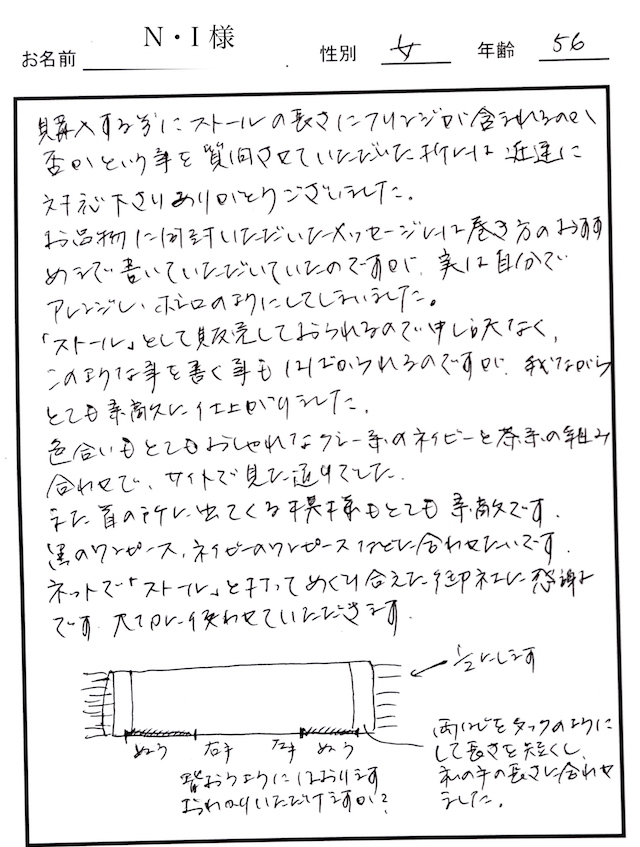 お名前 N・I 様 性別 女 年齢 56
購入する前にストールの長さにフリンジが含まれるのか
否かという事を質問させていただいた折には 迅速に
対応下さりありがとうございました。
お品物に同封いただいたメッセージには巻き方のおすす
めまで書いていただいていたのですが、実は自分で
アレンジし、ボレロのようにしてしまいました。
「ストール」として販売しておられるので申し訳なく、
このような事を書く事もはばかられるのですが、我ながら
とても素敵に仕上がりました。
色合いもとてもおしゃれなグレー系のネイビーと茶系の組み
合わせで、サイトで見た通りでした。
また首の所に出てくる模様もとても素敵です。
黒のワンピース、ネイビーのワンピースなどに合わせたいです。
ネットで「ストール」と打ってめぐり合えた御社に感謝
です。大切に使わせていただきます。
1/2にします
ぬう 右手 左手 ぬう
両はしをタックのように
して長さを短くし、
私の手の長さに合わせ
ました。
羽おるようにはおります
おわかりいただけますか?